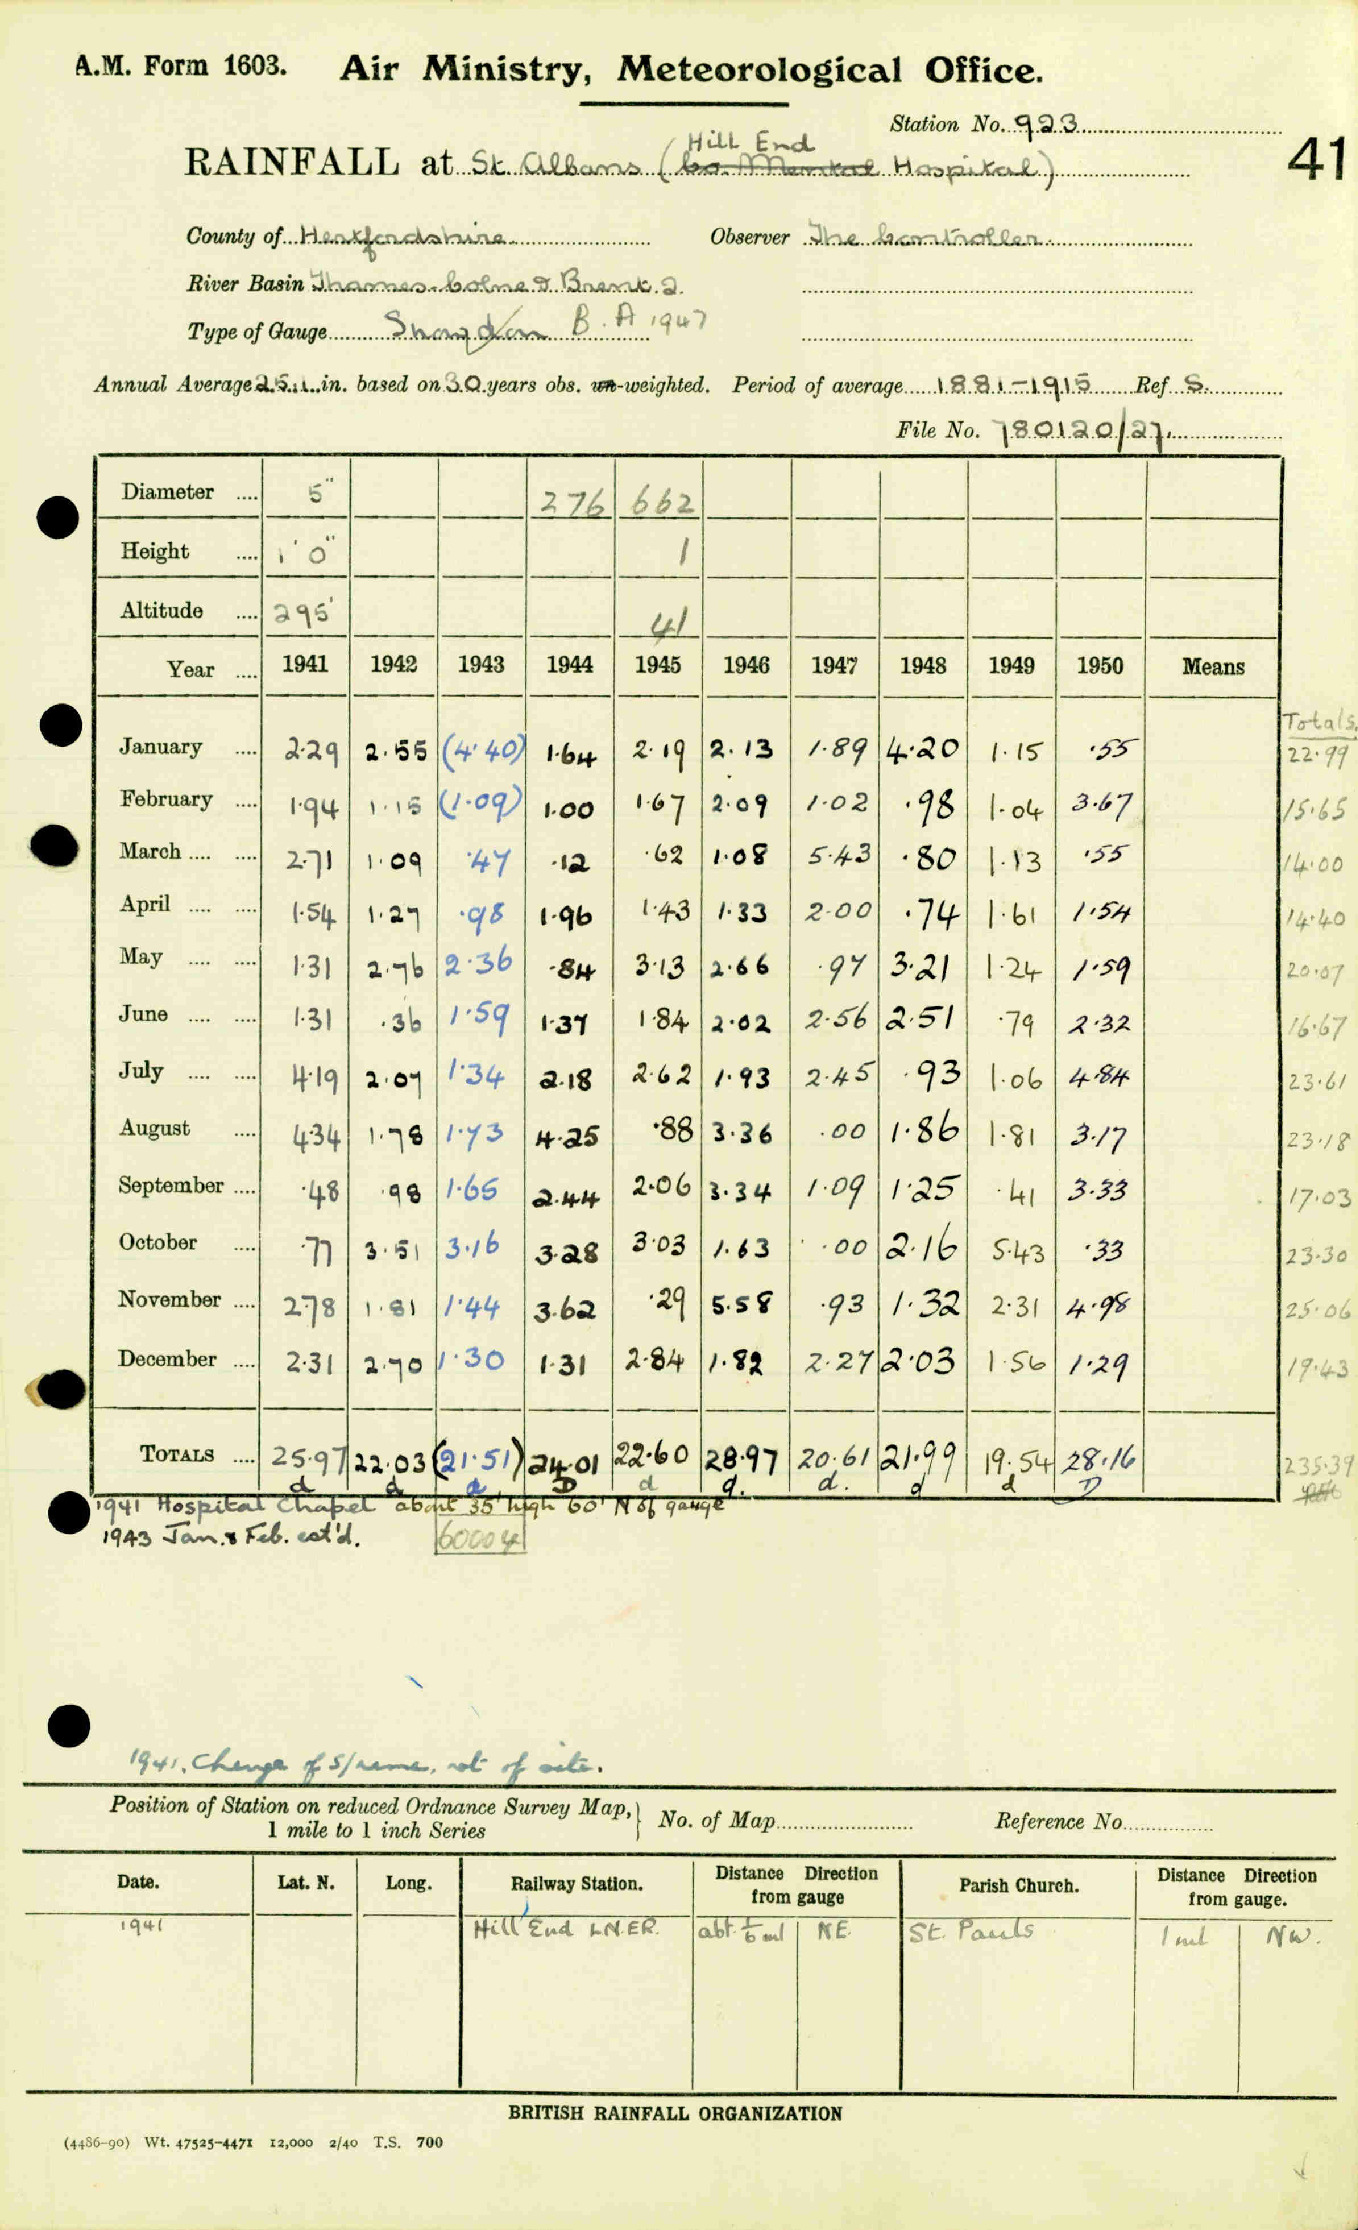 A.M. Form 1603. Air Ministry, Meteorological Office.
Station No. 923
41
Hill End
RAINFALL at St. Albans (Co. Mental Hospital)
County of Hertfordshire Observer The Controller
River Basin Thames-Colne & Brent. 2.
Type of Gauge Snowdon B.A 1947
Annual Average 25.1 in. based on 30 years obs. un-weighted. Period of average 1881-1915 Ref. S.
File No. 780120/27.
Diameter .... 5" 276 662
Height .... 1' 0" 1
Altitude .... 295' 41
Year .... 1941 1942 1943 1944 1945 1946 1947 1948 1949 1950 Means
Totals.
January .... 2.29 2.55 (4.40) 1.64 2.19 2.13 1.89 4.20 1.15 .55 22.99
February .... 1.94 1.15 (1.09) 1.00 1.67 2.09 1.02 .98 1.04 3.67 15.65
March .... .... 2.71 1.09 .47 .12 .62 1.08 5.43 .80 1.13 .55 14.00
April .... .... 1.54 1.27 .98 1.96 1.43 1.33 2.00 .74 1.61 1.54 14.40
May .... .... 1.31 2.76 2.36 .84 3.13 2.66 .97 3.21 1.24 1.59 20.07
June .... .... 1.31 .36 1.59 1.37 1.84 2.02 2.56 2.51 .79 2.32 16.67
July .... .... 4.19 2.07 1.34 2.18 2.62 1.93 2.45 .93 1.06 4.84 23.61
August .... 4.34 1.78 1.73 4.25 .88 3.36 .00 1.86 1.81 3.17 23.18
September .... .48 .98 1.65 2.44 2.06 3.34 1.09 1.25 .41 3.33 17.03
October .... .77 3.51 3.16 3.28 3.03 1.63 .00 2.16 5.43 .33 23.30
November .... 2.78 1.81 1.44 3.62 .29 5.58 .93 1.32 2.31 4.98 25.06
December .... 2.31 2.70 1.30 1.31 2.84 1.82 2.27 2.03 1.56 1.29 19.43
TOTALS .... 25.97 22.03 (21.51) 24.01 22.60 28.97 20.61 21.99 19.54 28.16 235.39
d d d D d d. d. d d D
1941 Hospital Chapel about 35' high 60' N of gauge
1943 Jan. & Feb. est'd.
1941. Change of S/name, not of site.
Position of Station on reduced Ordnance Survey Map, 1 mile to 1 inch Series No. of Map Reference No.
Date. Lat. N. Long. Railway Station. Distance Direction from gauge Parish Church. Distance Direction from gauge.
1941 Hill End L.N.E.R. abt. 1/6 ml NE. St. Pauls 1 ml NW.
BRITISH RAINFALL ORGANIZATION
(4486-90) Wt. 47525-4471 12,000 2/40 T.S. 700